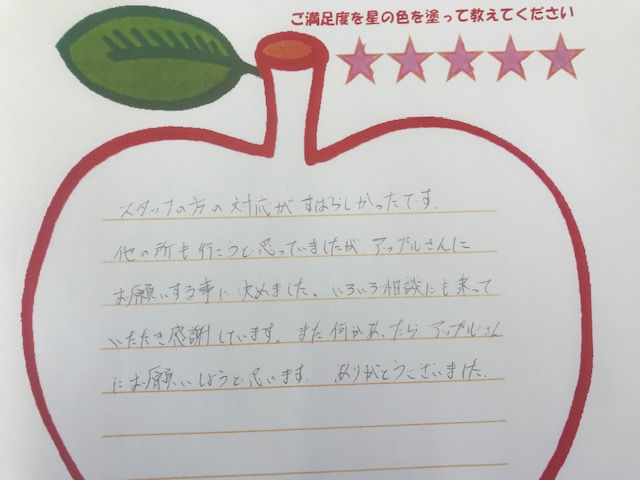 ご満足度を星の色を塗って教えてください
スタッフの方の対応がすばらしかったです。
他の所も行こうと思っていましたが アップルさんに
お願いする事に決めました。いろいろ相談にも乗って
いただき感謝しています。また何かあったら アップルさん
にお願いしようと思います。 ありがとうございました。